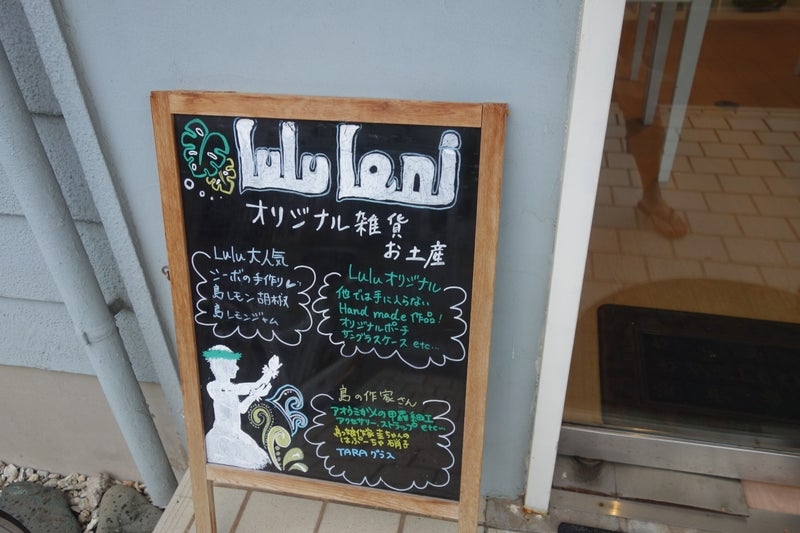 Lulu Lani
オリジナル雑貨
お土産
Lulu大人気
ジーボの手作り
島レモン胡椒
島レモンジャム
Luluオリジナル
他では手に入らない
Hand made作品!
オリジナルポーチ
サングラスケース etc...
島の作家さん
アオウミガメの甲羅細工
アクセサリー.ストラップ etc...
はぷーちゃ硝子
TARAグラス